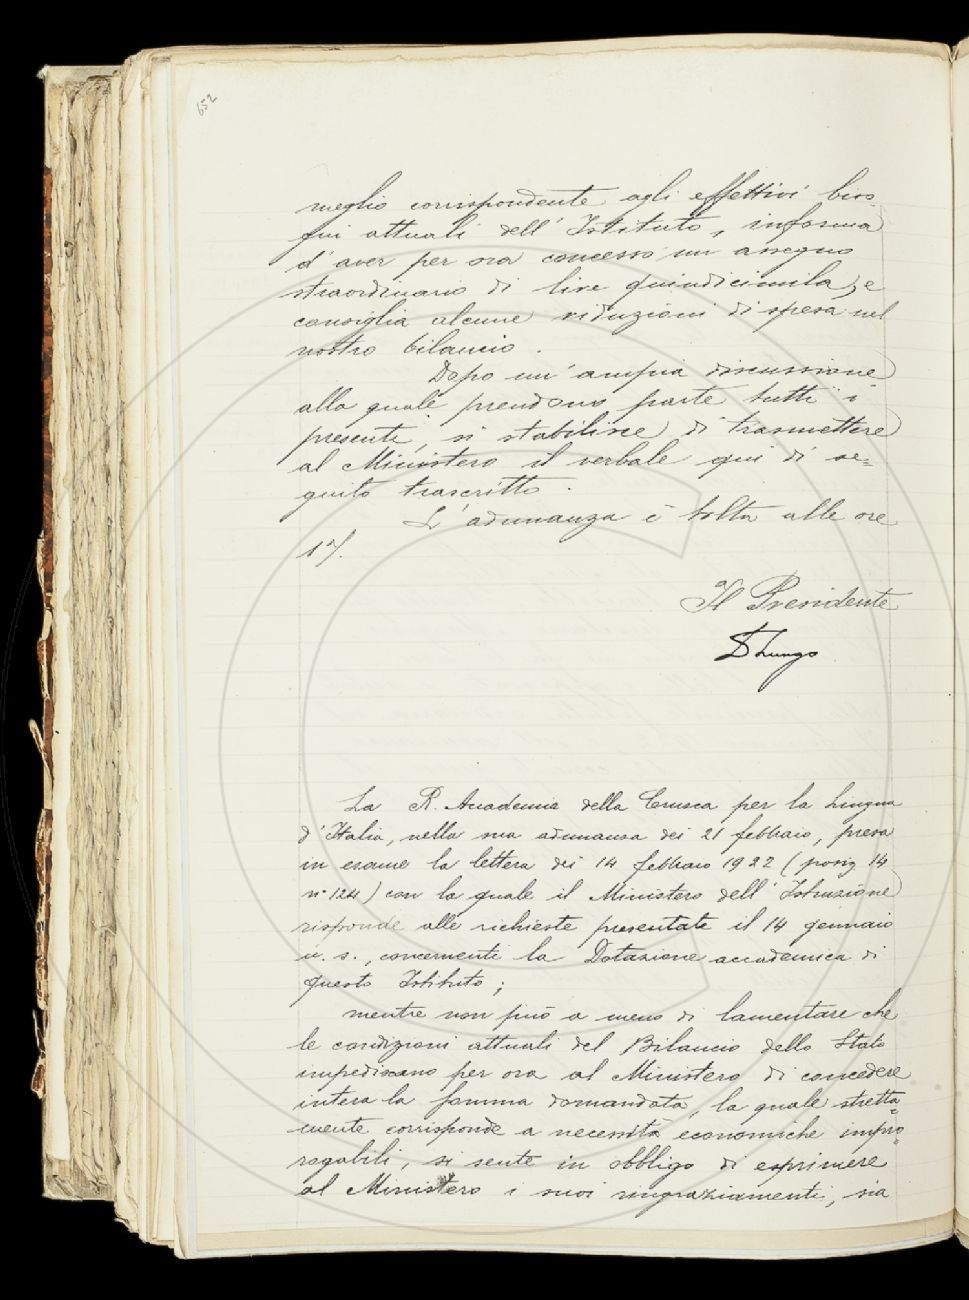 652
meglio corrispondente agli effettivi biso
gni attuali dell'Istituto, informa
d'aver per ora concesso un assegno
straordinario di lire quindicimila, e
consiglia alcune riduzioni di spesa nel
nostro bilancio.
Dopo un'ampia discussione
alla quale prendono parte tutti i
presenti, si stabilisce di trasmettere
al Ministero il verbale qui di se=
guito trascritto.
L'adunanza è tolta alle ore
17.
Il Presidente
D Lungo
La R. Accademia della Crusca per la Lingua
d'Italia, nella sua adunanza dei 21 febbraio, presa
in esame la lettera dei 14 febbraio 1922 (posiz 14
n° 124) con la quale il Ministero dell'Istruzione
risponde alle richieste presentate il 14 gennaio
u. s., concernenti la Dotazione accademica di
questo Istituto;
mentre non può a meno di lamentare che
le condizioni attuali del Bilancio dello Stato
impediscano per ora al Ministero di concedere
intera la somma domandata, la quale stretta=
mente corrisponde a necessità economiche impro=
rogabili, si sente in obbligo di esprimere
al Ministero i suoi ringraziamenti, sia